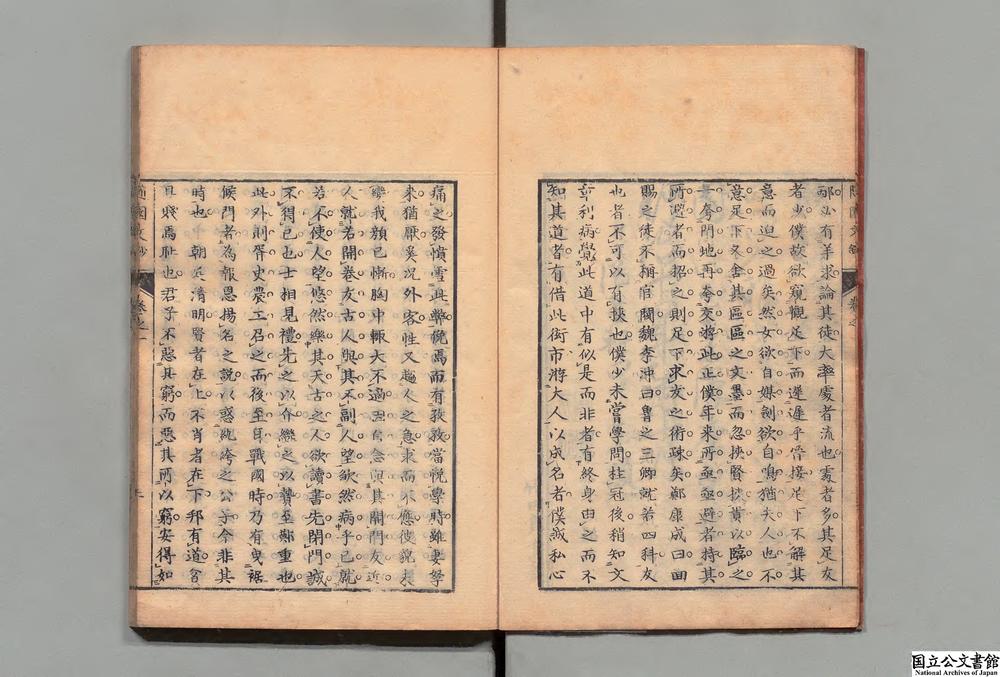 祁亦有羊求論其徒大率處者流也處者多其足友
者少僕故欲窺觀足下而遲遲乎骨接足下不解其
意而迫之過矣然女欲自媒劍欲自鳴猶夫人也不
意足下久舍其區區之文墨而忽挾賢挾貴以臨之
夸門地再夸交游此正僕年來所亟亟避者持其
所避者而招之則足下求友之術疎矣鄭康成曰回
賜之徒不稱官閥魏李沖曰魯之三卿就若四科友
也者不可以有挾也僕少未嘗學問柱冠後稍知文
章利病覺此道中有似是而非者有終身由之而不
知其道者有借此街市將大人以成名者僕誠私心
痛之發憤雪此弊俛焉而有孜孜當悅學時雖妻孥
來猶厭奚况外客性又趨人之急求而不應彼貌未
變我顏已慚胸中輒大不過因自念與其開門友近
人就若開卷友古人與其不副人望欿然病乎已就
若不使人望悠然樂其天古之人欲讀書先閉門誠
不得已也士相見禮先之以介繼之以贄至鄭重也
此外則胥史農工召之而後至耳戰國時乃有曳裾
候門者為報恩揚名之說以惑紈袴之公子今非其
時也 朝廷清明賢者在上不肖者在下邦有道貧
且賤焉耻也君子不惡其窮而惡其所以窮安得如
国立公文書館
National Archives of Japan